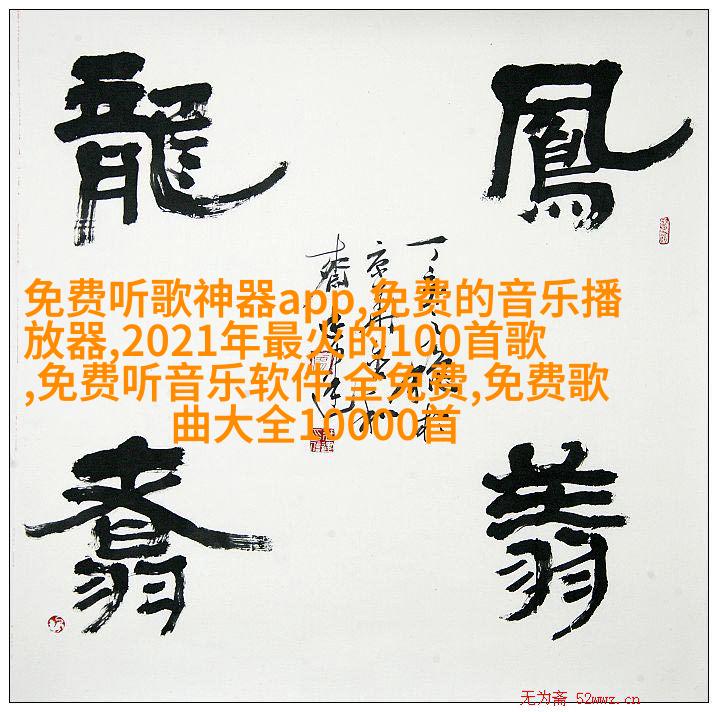 鳳翔
龍翥
免费听歌神器app,免费的音乐播
放器,2021年最火的100首歌
,免费听音乐软件 全免费,免费歌
曲大全10000首
无为斋 52wwz.cn